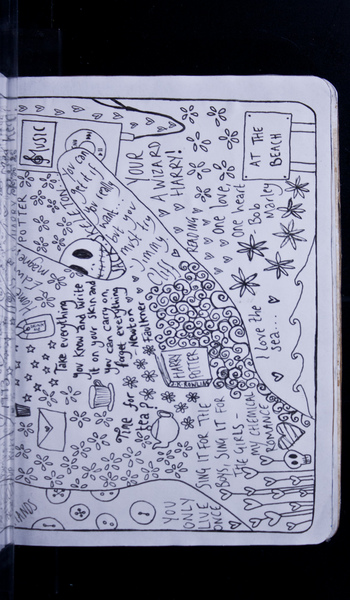 MUSIC
POTTER
YOUR
A WIZARD
HARRY!
you can
get it if
you really
want...
but you
must try
Jimmy
Cliff
READING
One love,
one heart
- Bob
Marley
AT THE
BEACH
I love the
sea...
Take everything
you know and write
it on your skin and
you can carry on,
forget everything
- Newton
Faulkner
HARRY
POTTER
J.K. ROWLING
Time for
tea?
SING IT FOR THE
BOYS, SING IT FOR
THE GIRLS -
MY CHEMICAL
ROMANCE
YOU
ONLY
LIVE
ONCE